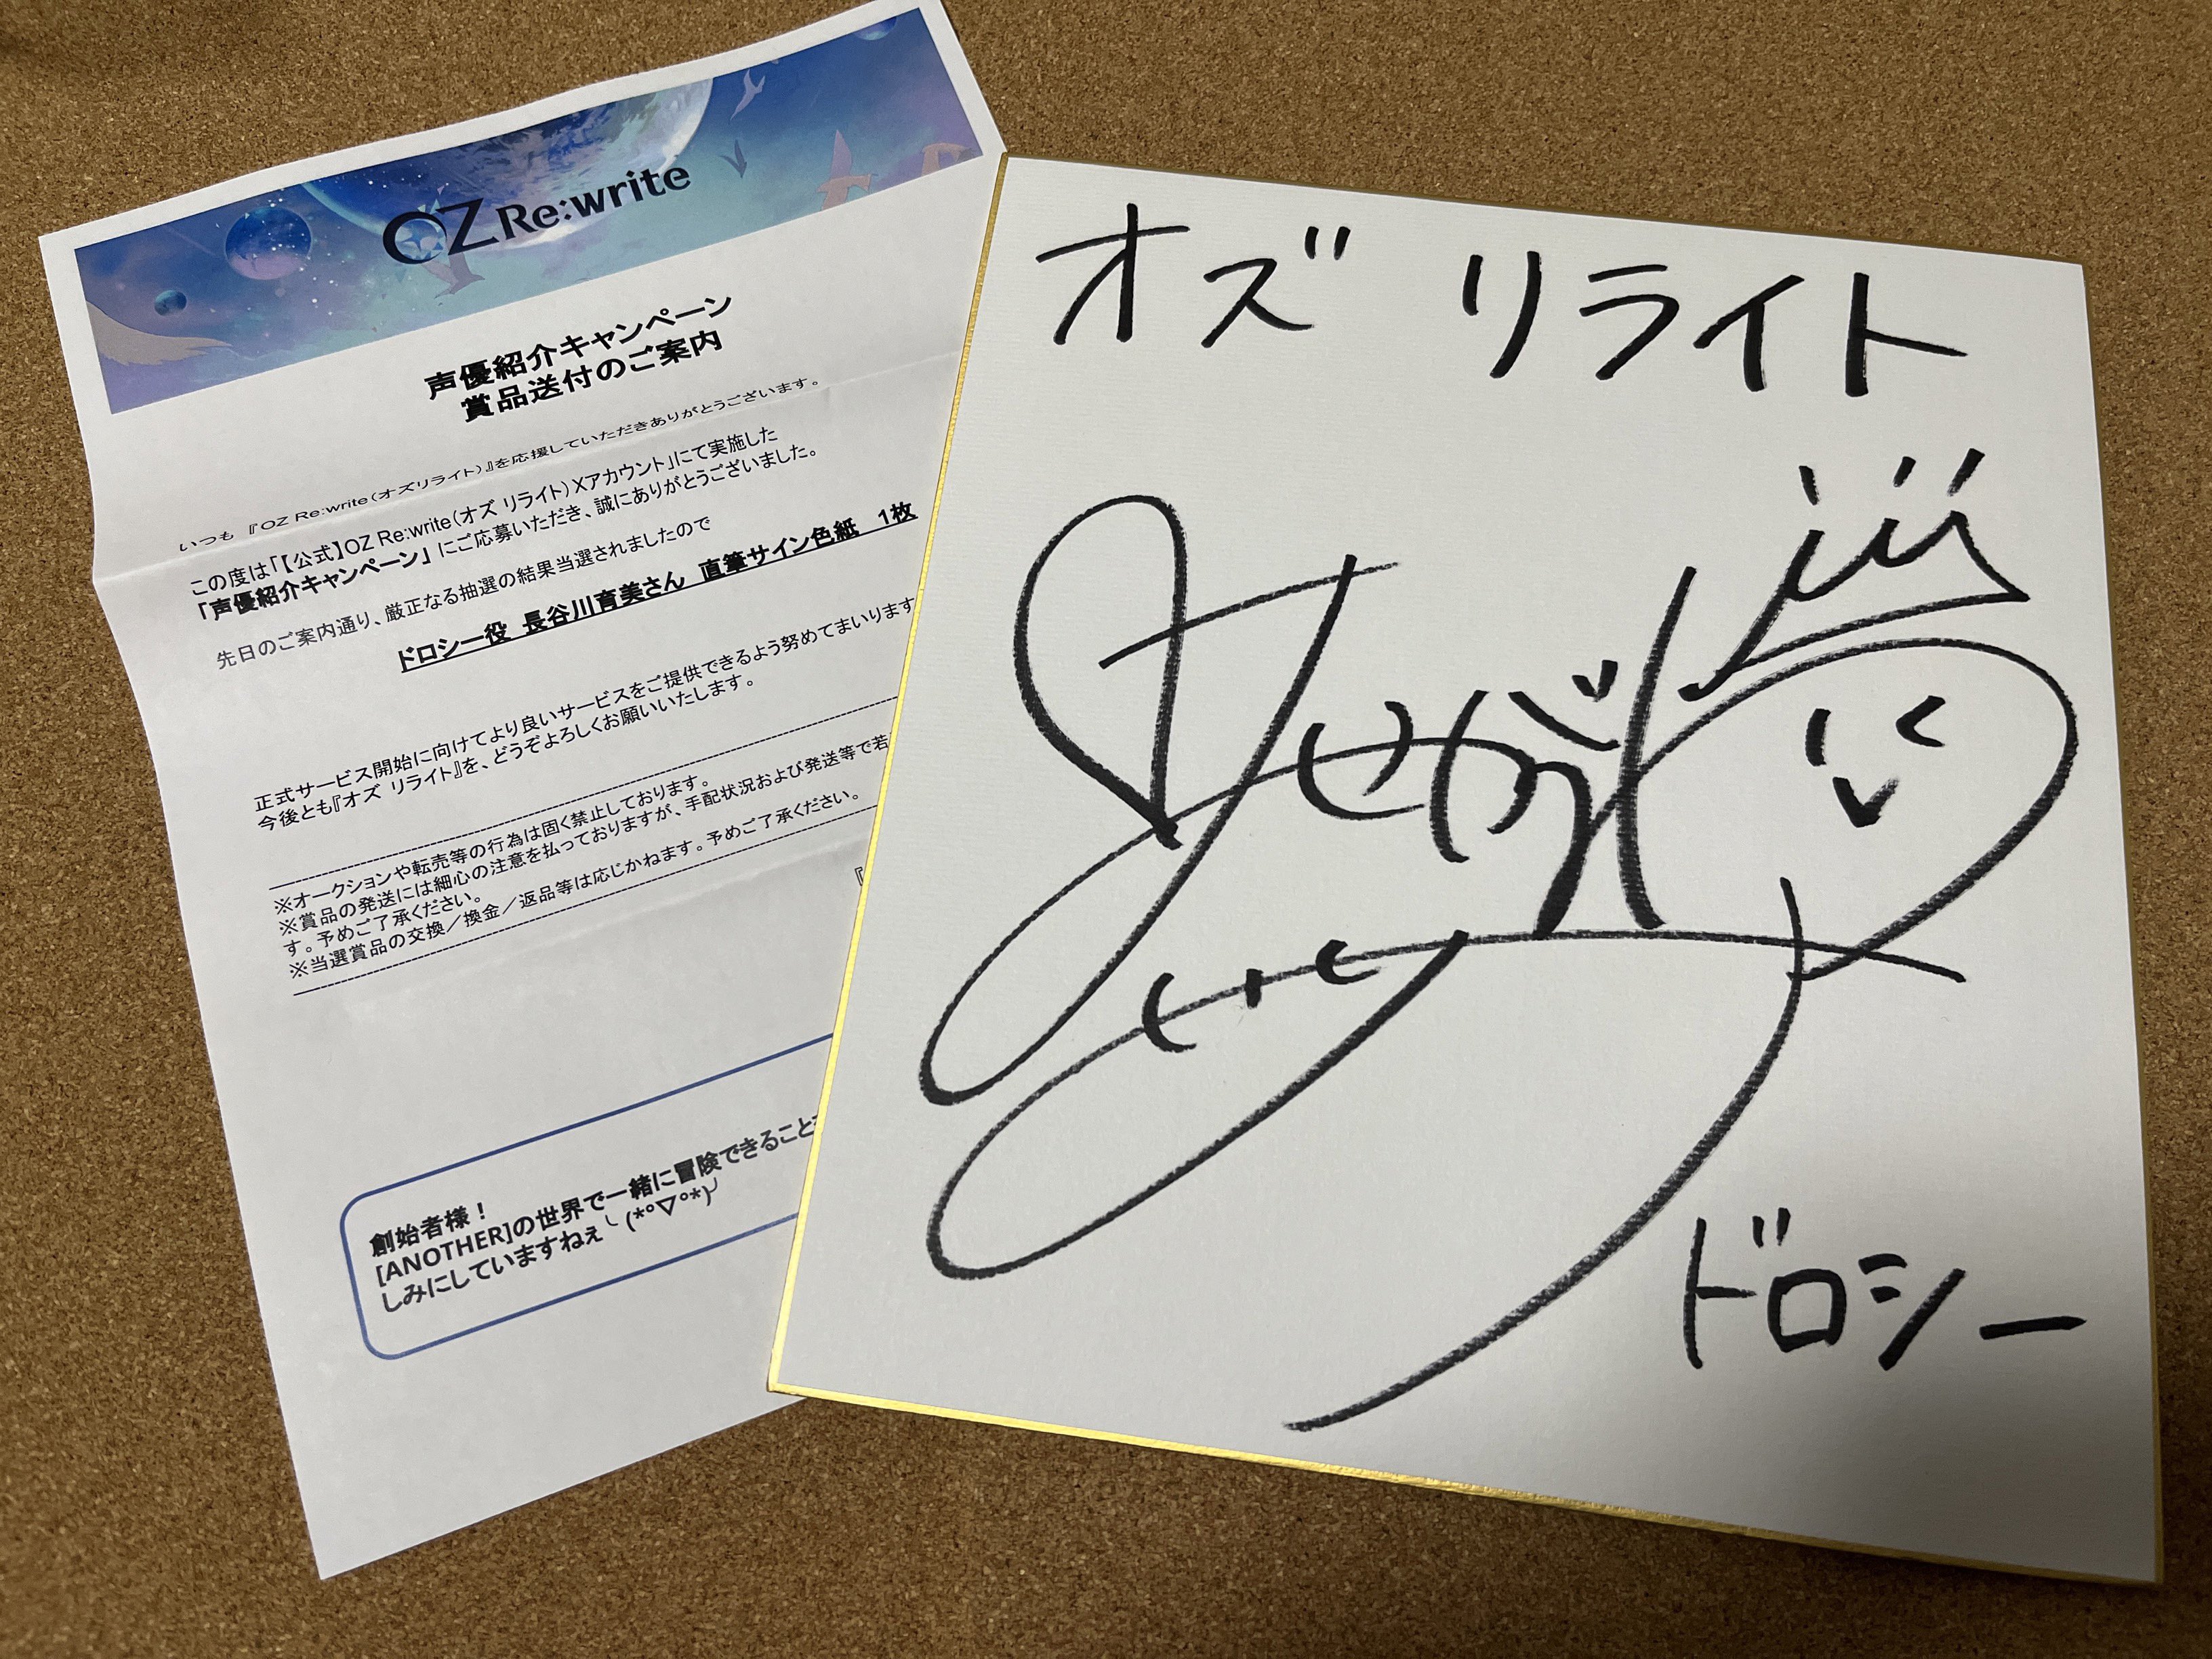 OZ Re:write
声優紹介キャンペーン
賞品送付のご案内
いつも『OZ Re:write(オズリライト)』を応援していただきありがとうございます。
この度は「【公式】OZ Re:write(オズ リライト)Xアカウント」にて実施した
「声優紹介キャンペーン」にご応募いただき、誠にありがとうございました。
先日のご案内通り、厳正なる抽選の結果当選されましたので
ドロシー役 長谷川育美さん 直筆サイン色紙 1枚
正式サービス開始に向けてより良いサービスをご提供できるよう努めてまいります
今後とも『オズ リライト』を、どうぞよろしくお願いいたします。
※オークションや転売等の行為は固く禁止しております。
※賞品の発送には細心の注意を払っておりますが、手配状況および発送等で若
す。予めご了承ください。
※当選賞品の交換／換金／返品等は応じかねます。予めご了承ください。
『
創始者様！
[ANOTHER]の世界で一緒に冒険できること
しみにしていますねぇ╰(*°▽°*)╯
オズ リライト
ドロシー